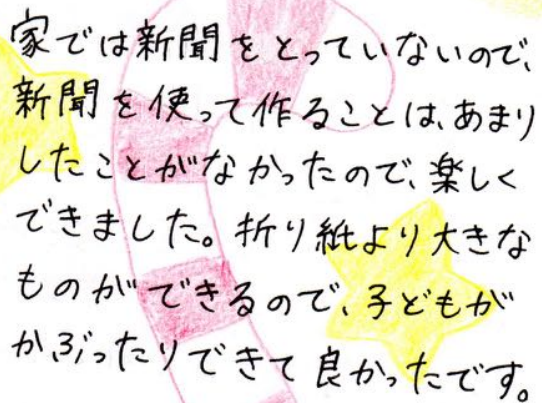 家では新聞をとっていないので、
新聞を使って作ることは、あまり
したことがなかったので、楽しく
できました。折り紙より大きな
ものができるので、子どもが
かぶったりできて良かったです。